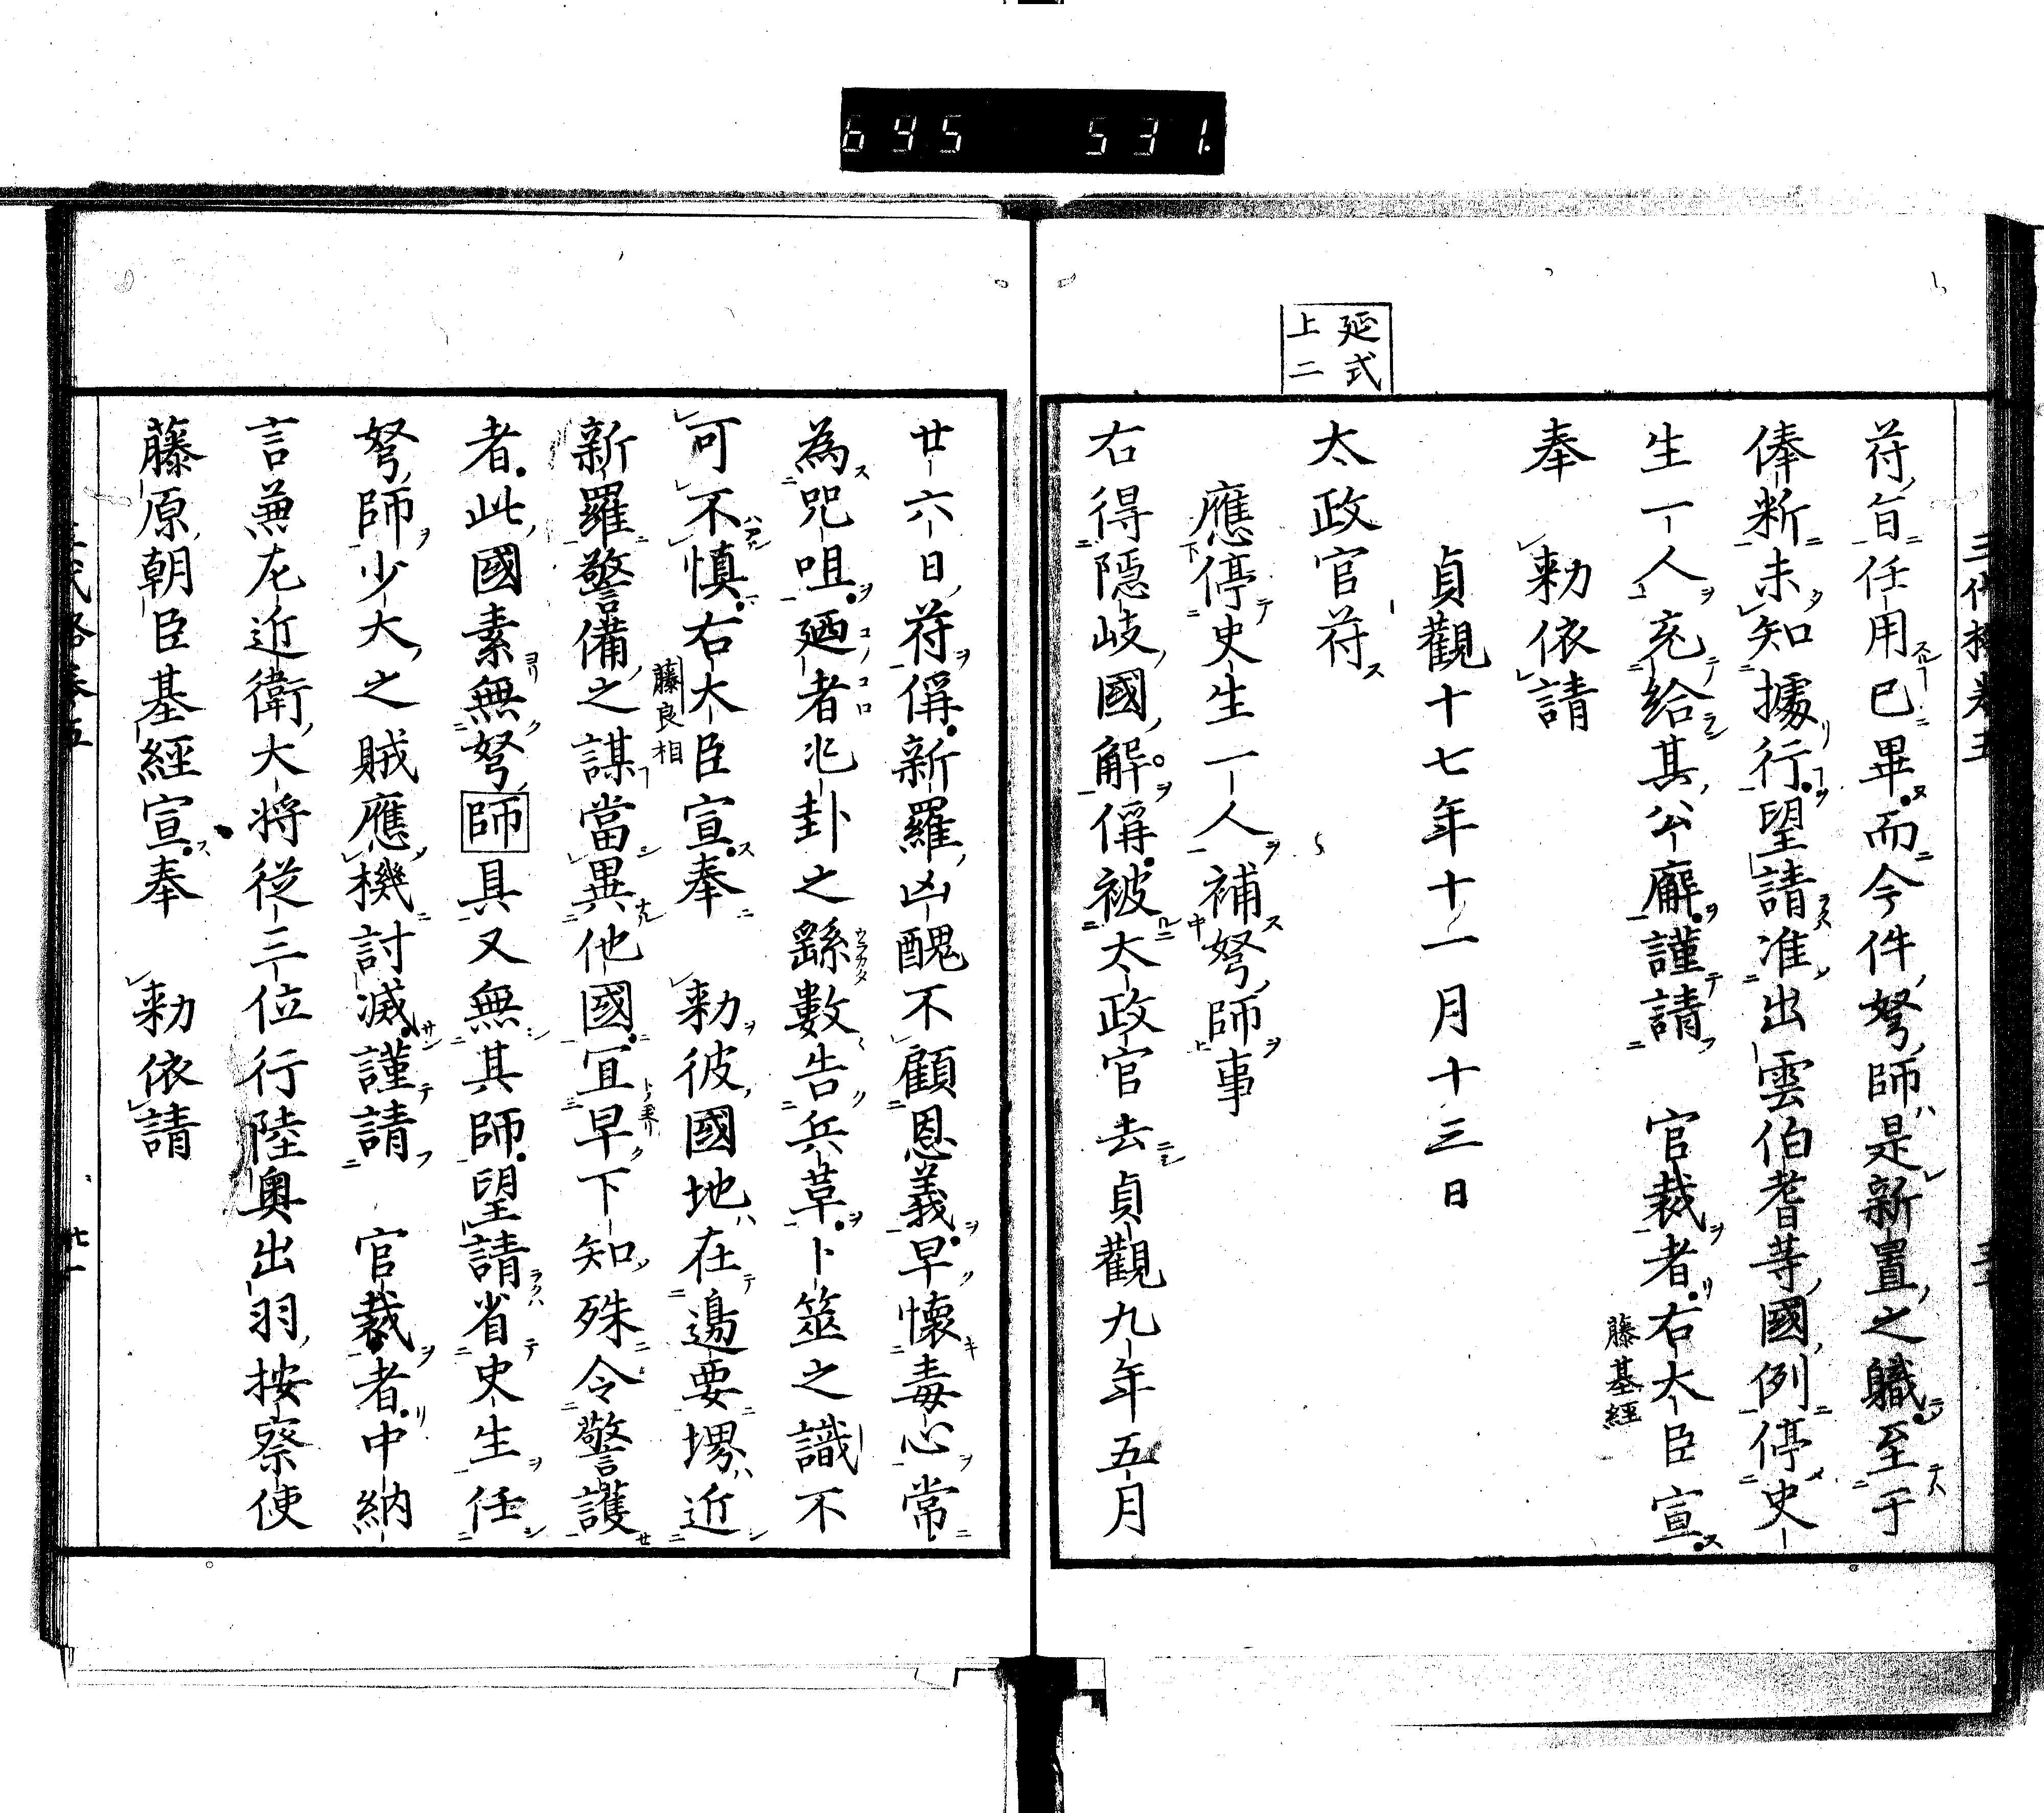 695 531.
延式
上二
符旨任用已畢而今件弩師是新置之職至于
俸料未知據行望請准出雲伯耆等國例停史
生一人充給其公廨謹請 官裁者右大臣宣
藤基經
奉 勅依請
貞觀十七年十一月十三日
太政官符
應停史生一人補弩師事
右得隱岐國解偁被太政官去貞觀九年五月
廿六日符偁新羅凶醜不顧恩義早懷毒心常
為咒咀廼者兆卦之繇數告兵革卜筮之識不
可不慎右大臣宣奉 勅彼國地在邊要堺近
藤良相
新羅警備之謀當異他國宜早下知殊令警護
者此國素無弩師具又無其師望請省史生任
弩師少大之賊應機討滅謹請 官裁者中納
言兼左近衛大将從三位行陸奥出羽按察使
藤原朝臣基經宣奉 勅依請